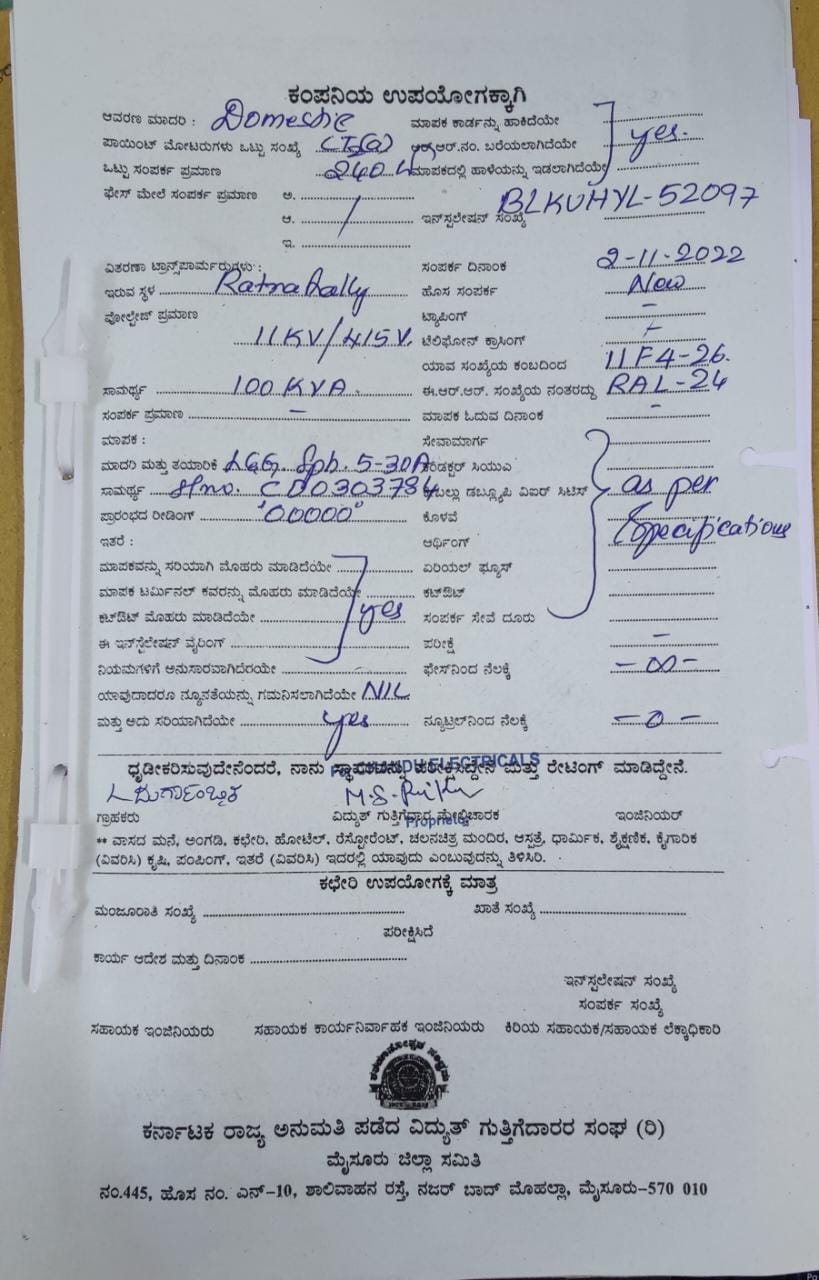 ಕಂಪನಿಯ ಉಪಯೋಗಕ್ಕಾಗಿ
ಆವರಣ ಮಾದರಿ : Domestic ಮಾಪಕ ಕಾರ್ಡನ್ನು ಹಾಕಿದೆಯೇ
ಪಾಯಿಂಟ್ ಮೋಟರುಗಳು ಒಟ್ಟು ಸಂಖ್ಯೆ ಆರ್.ಆರ್.ನಂ. ಬರೆಯಲಾಗಿದೆಯೇ yes.
ಒಟ್ಟು ಸಂಪರ್ಕ ಪ್ರಮಾಣ 240 ಮಾಪಕದಲ್ಲಿ ಹಾಳೆಯನ್ನು ಇಡಲಾಗಿದೆಯೇ
ಫೇಸ್ ಮೇಲೆ ಸಂಪರ್ಕ ಪ್ರಮಾಣ ಅ. BLKUHYL-52097
ಆ. / ಇನ್‌ಸ್ಟಲೇಷನ್ ಸಂಖ್ಯೆ
ಇ.
ವಿತರಣಾ ಟ್ರಾನ್ಸ್‌ಪಾರ್ಮರುಗಳು : ಸಂಪರ್ಕ ದಿನಾಂಕ 2-11-2022
ಇರುವ ಸ್ಥಳ Ratnahally ಹೊಸ ಸಂಪರ್ಕ New
ವೋಲ್ಟೇಜ್ ಪ್ರಮಾಣ ಟ್ಯಾಪಿಂಗ್ –
11KV/415V. ಟೆಲಿಫೋನ್ ಕ್ರಾಸಿಂಗ್
ಯಾವ ಸಂಖ್ಯೆಯ ಕಂಬದಿಂದ 11F4-26.
ಸಾಮರ್ಥ್ಯ 100 KVA. ಈ.ಆರ್.ಆರ್. ಸಂಖ್ಯೆಯ ನಂತರದ್ದು RAL-24
ಸಂಪರ್ಕ ಪ್ರಮಾಣ – ಮಾಪಕ ಓದುವ ದಿನಾಂಕ –
ಮಾಪಕ : ಸೇವಾಮಾರ್ಗ
ಮಾದರಿ ಮತ್ತು ತಯಾರಿಕೆ L&G, Sph. 5-30A ಕಂಡಕ್ಟರ್ ಸಿಯುಎ
ಸಾಮರ್ಥ್ಯ Slno. CD0303784 ಕೇಬಲ್ಲು ಡಬ್ಲ್ಯೂಪಿ ವಿಐರ್ ಸಿಟಿಸ್ as per
ಪ್ರಾರಂಭದ ರೀಡಿಂಗ್ '00000' ಕೊಳವೆ Specifications
ಇತರೆ : ಆರ್ಥಿಂಗ್
ಮಾಪಕವನ್ನು ಸರಿಯಾಗಿ ಮೊಹರು ಮಾಡಿದೆಯೇ ಏರಿಯಲ್ ಫ್ಯೂಸ್
ಮಾಪಕ ಟರ್ಮಿನಲ್ ಕವರನ್ನು ಮೊಹರು ಮಾಡಿದೆಯೇ ಕಟ್‌ಔಟ್
ಕಟ್‌ಔಟ್ ಮೊಹರು ಮಾಡಿದೆಯೇ yes ಸಂಪರ್ಕ ಸೇವೆ ದೂರು
ಈ ಇನ್‌ಸ್ಟಲೇಷನ್ ವೈರಿಂಗ್ ಪರೀಕ್ಷೆ –
ನಿಯಮಗಳಿಗೆ ಅನುಸಾರವಾಗಿದೆರಯೇ ಫೇಸ್‌ನಿಂದ ನೆಲಕ್ಕೆ –∞–
ಯಾವುದಾದರೂ ನ್ಯೂನತೆಯನ್ನು ಗಮನಿಸಲಾಗಿದೆಯೇ NIL
ಮತ್ತು ಅದು ಸರಿಯಾಗಿದೆಯೇ yes ನ್ಯೂಟ್ರಲ್‌ನಿಂದ ನೆಲಕ್ಕೆ –0–
ELECTRICALS
ಧೃಡೀಕರಿಸುವುದೇನೆಂದರೆ, ನಾನು ಸ್ಥಾವರವನ್ನು ಪರೀಕ್ಷಿಸಿದ್ದೇನೆ ಮತ್ತು ರೇಟಿಂಗ್ ಮಾಡಿದ್ದೇನೆ.
ಗ್ರಾಹಕರು ವಿದ್ಯುತ್ ಗುತ್ತಿಗೆದಾರ ಮೇಲ್ವಿಚಾರಕ ಇಂಜಿನಿಯರ್
Proprietor
** ವಾಸದ ಮನೆ, ಅಂಗಡಿ, ಕಛೇರಿ, ಹೋಟೆಲ್, ರೆಸ್ಟೋರೆಂಟ್, ಚಲನಚಿತ್ರ ಮಂದಿರ, ಆಸ್ಪತ್ರೆ, ಧಾರ್ಮಿಕ, ಶೈಕ್ಷಣಿಕ, ಕೈಗಾರಿಕ
(ವಿವರಿಸಿ) ಕೃಷಿ, ಪಂಪಿಂಗ್, ಇತರೆ (ವಿವರಿಸಿ) ಇದರಲ್ಲಿ ಯಾವುದು ಎಂಬುವುದನ್ನು ತಿಳಿಸಿರಿ.
ಕಛೇರಿ ಉಪಯೋಗಕ್ಕೆ ಮಾತ್ರ
ಮಂಜೂರಾತಿ ಸಂಖ್ಯೆ ಖಾತೆ ಸಂಖ್ಯೆ
ಪರೀಕ್ಷಿಸಿದೆ
ಕಾರ್ಯ ಆದೇಶ ಮತ್ತು ದಿನಾಂಕ
ಇನ್‌ಸ್ಟಲೇಷನ್ ಸಂಖ್ಯೆ
ಸಂಪರ್ಕ ಸಂಖ್ಯೆ
ಸಹಾಯಕ ಇಂಜಿನಿಯರು ಸಹಾಯಕ ಕಾರ್ಯನಿರ್ವಾಹಕ ಇಂಜಿನಿಯರು ಕಿರಿಯ ಸಹಾಯಕ/ಸಹಾಯಕ ಲೆಕ್ಕಾಧಿಕಾರಿ
ಕರ್ನಾಟಕ ರಾಜ್ಯ ಅನುಮತಿ ಪಡೆದ ವಿದ್ಯುತ್ ಗುತ್ತಿಗೆದಾರರ ಸಂಘ (ರಿ)
ಮೈಸೂರು ಜಿಲ್ಲಾ ಸಮಿತಿ
ನಂ.445, ಹೊಸ ನಂ. ಎನ್-10, ಶಾಲಿವಾಹನ ರಸ್ತೆ, ನಜರ್ ಬಾದ್ ಮೊಹಲ್ಲಾ, ಮೈಸೂರು-570 010